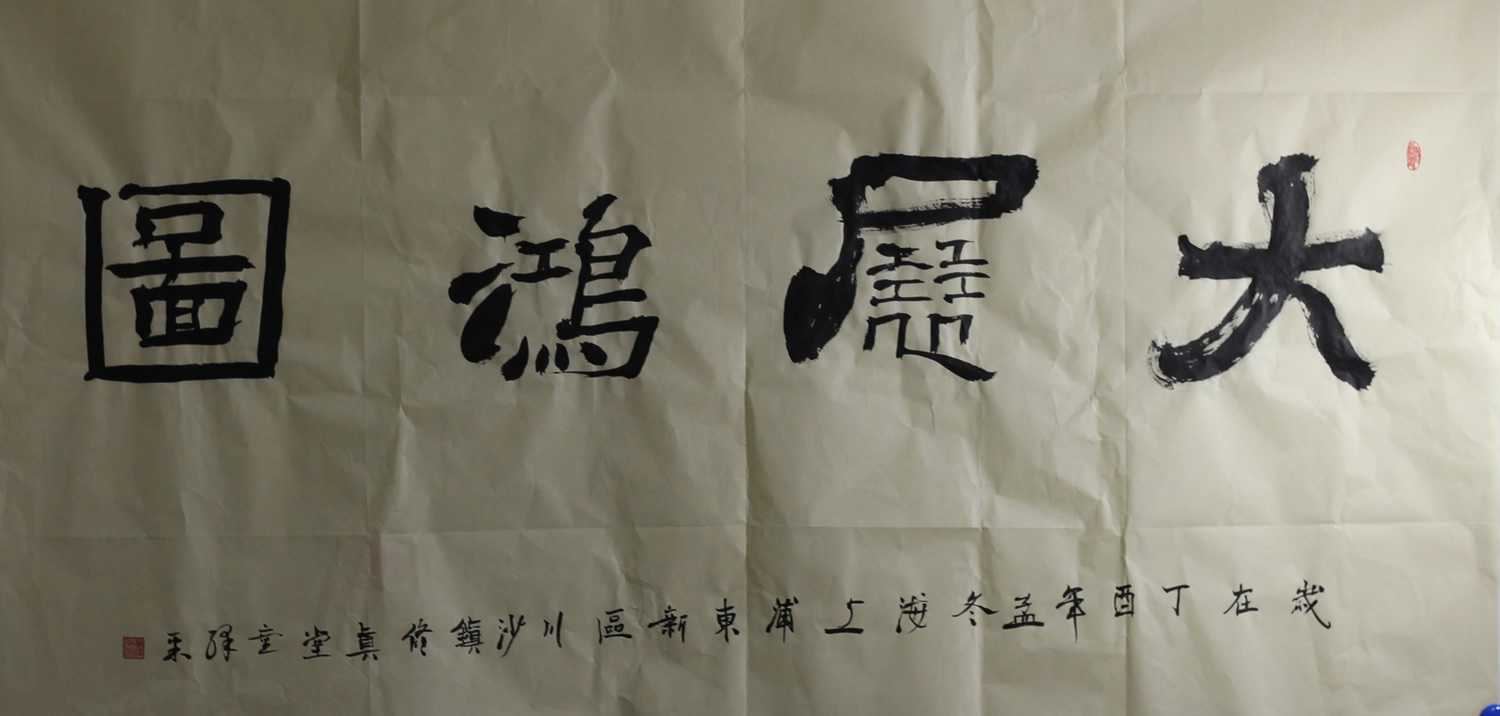 大展鴻圖
歲在丁酉年孟冬海上浦東新區川沙鎮修真堂童